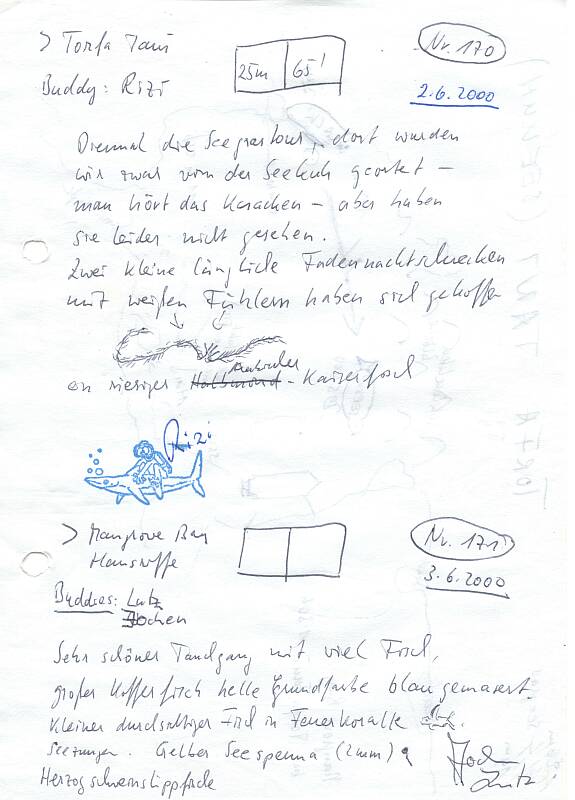 > Torfa Tani
Nr. 170
25m 65'
Buddy: Rizi
2.6.2000
Diesmal die Seegrastour, dort wurden
wir zwar von der Seekuh geortet –
man hört das Knacken – aber haben
sie leider nicht gesehen.
Zwei kleine längliche Fadennachtschnecken
mit weißen Fühlern haben sich getroffen
ein riesiger Halbmond - Kaiserfisch
Rizi
> Mangrove Bay
Hausriffe
Nr. 171
3.6.2000
Buddies: Lutz
Jochen
Sehr schöner Tauchgang mit viel Fisch,
großer Kofferfisch helle Grundfarbe blau gemasert.
Kleiner durchsichtiger Fisch in Feuerkoralle
Seezungen. Gelber Seespinne (2mm)
Herzogschweinslippfische
Joch
Lutz